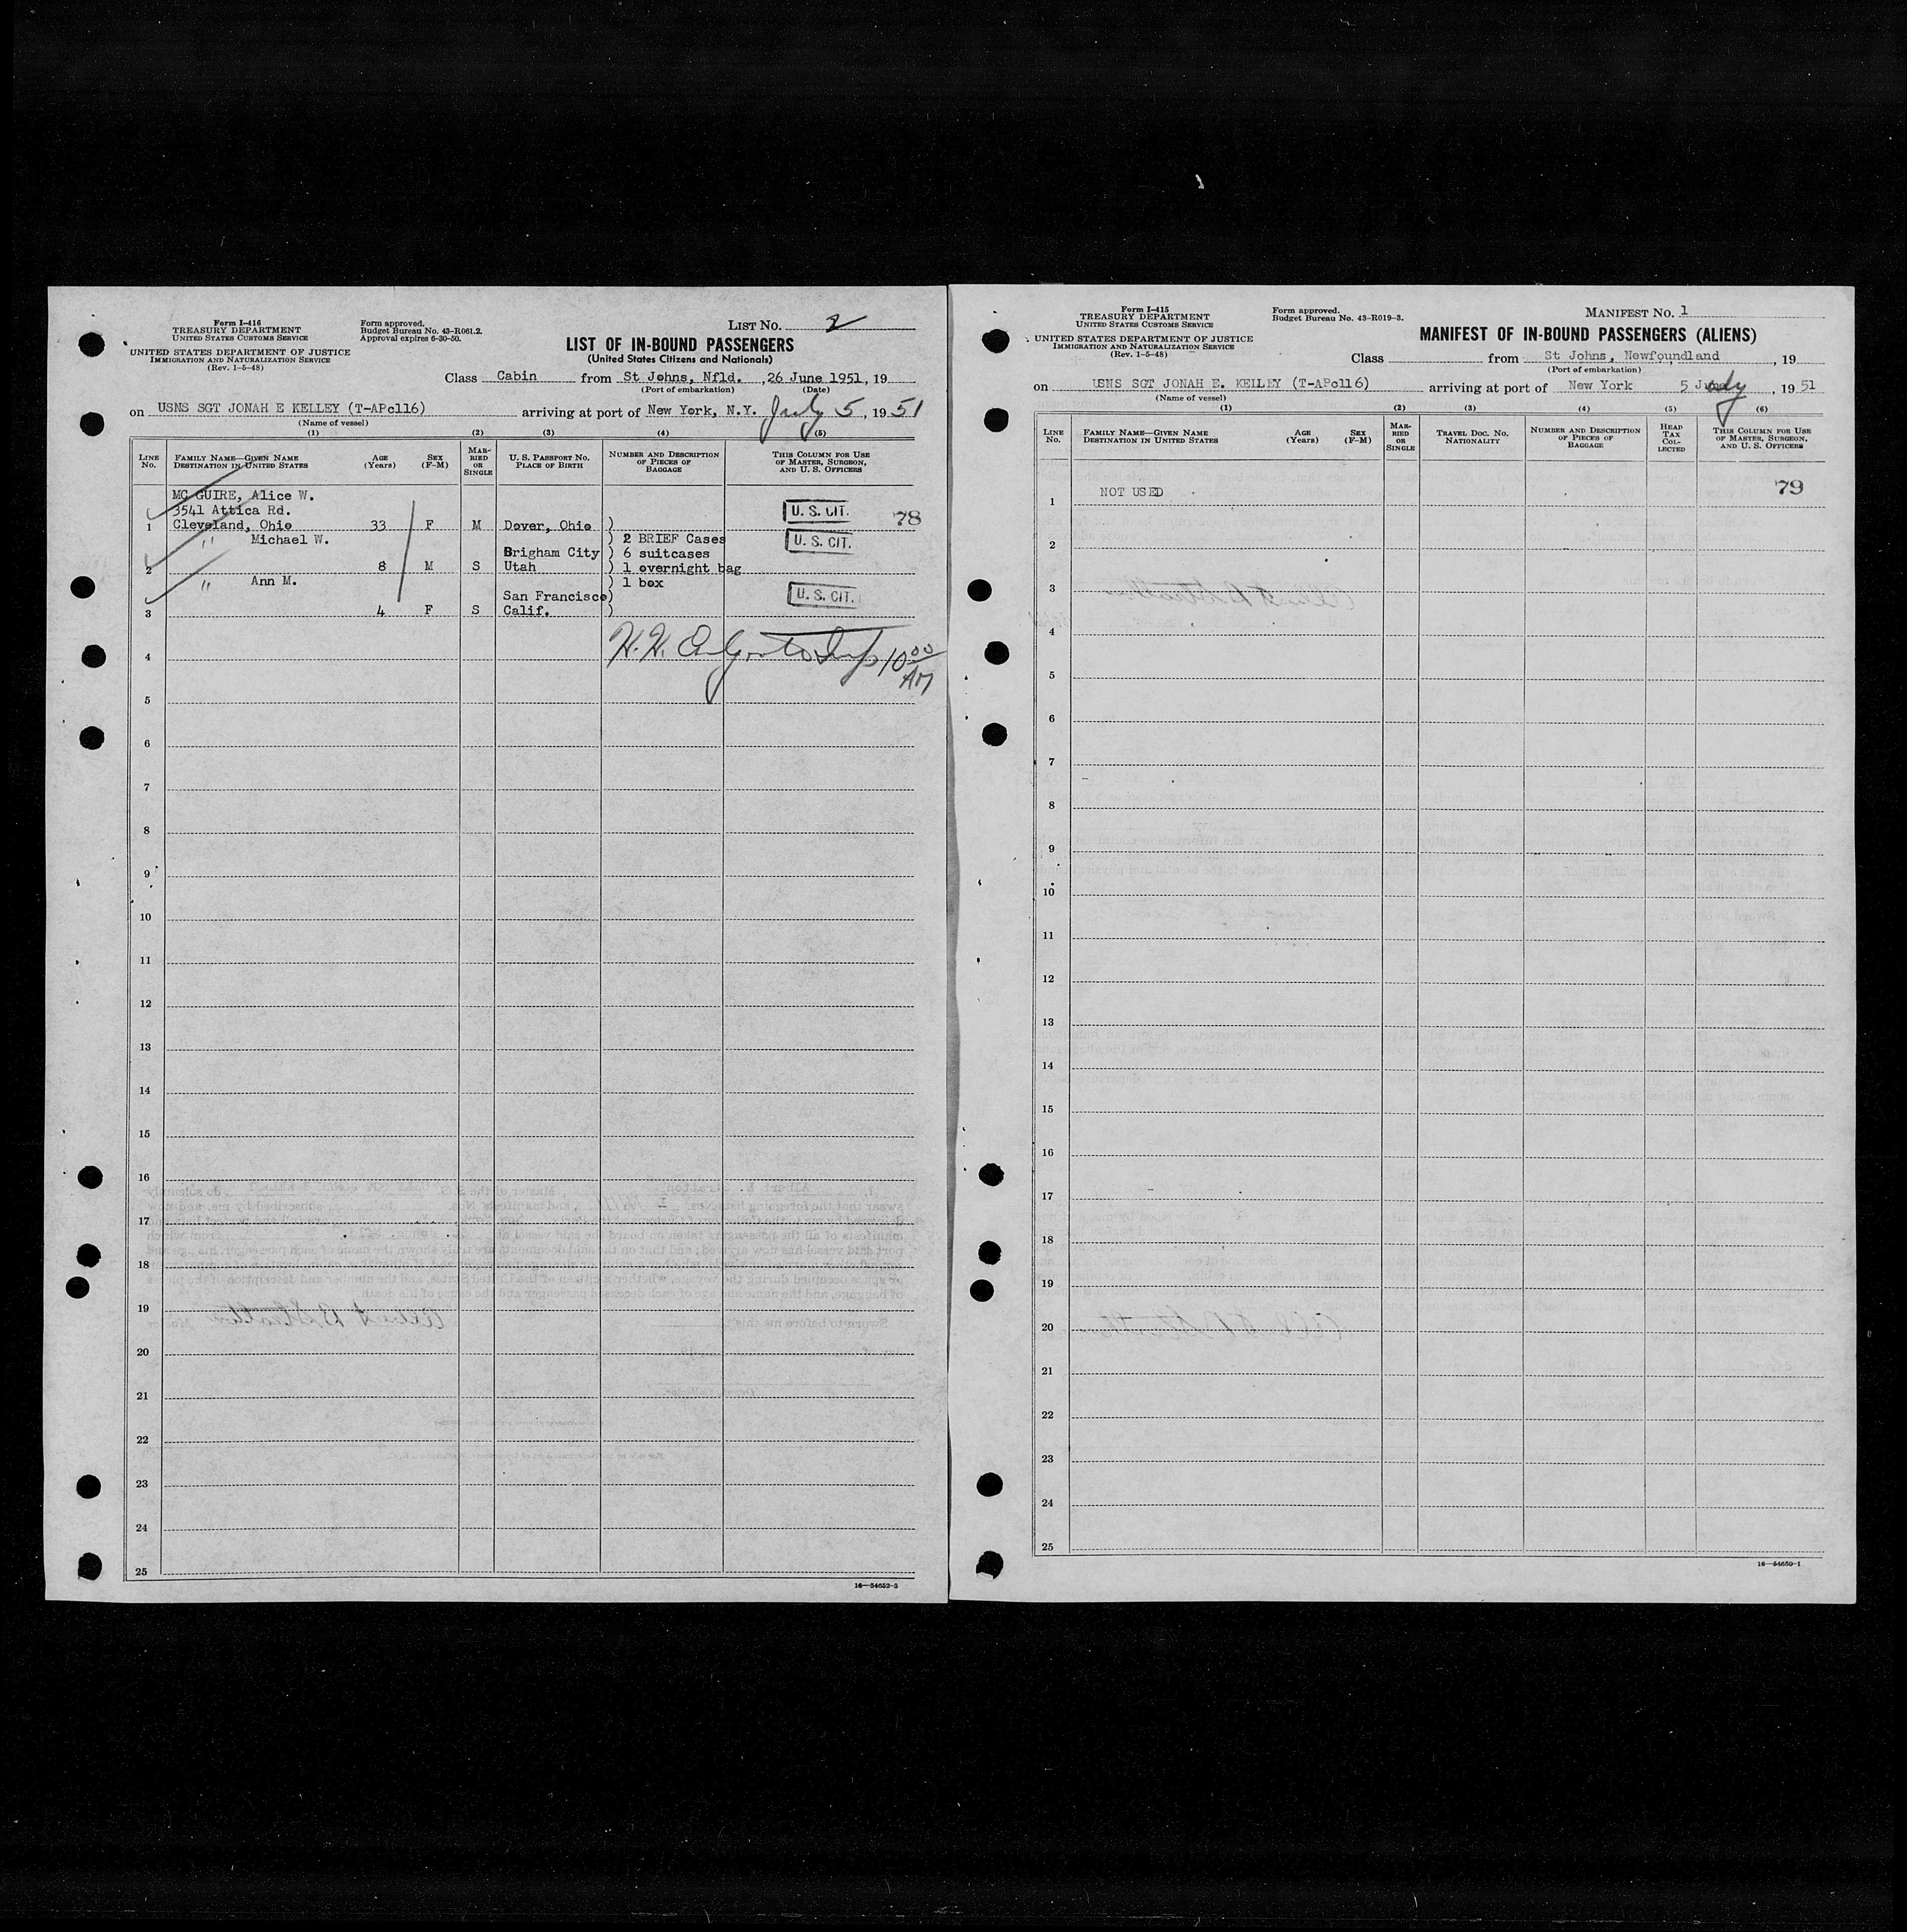 Form I-416
TREASURY DEPARTMENT
UNITED STATES CUSTOMS SERVICE
UNITED STATES DEPARTMENT OF JUSTICE
IMMIGRATION AND NATURALIZATION SERVICE
(Rev. 1-5-48)
Form approved.
Budget Bureau No. 43-R061.2.
Approval expires 6-30-50.
LIST NO. 2
LIST OF IN-BOUND PASSENGERS
(United States Citizens and Nationals)
Class Cabin from St Johns, Nfld. , 26 June 1951, 19
(Port of embarkation) (Date)
on USNS SGT JONAH E KELLEY (T-APc116) arriving at port of New York, N.Y. July 5, 1951
(Name of vessel)
(1) (2) (3) (4) (5)
LINE No. FAMILY NAME—GIVEN NAME DESTINATION IN UNITED STATES AGE (Years) SEX (F-M) MARRIED OR SINGLE U. S. PASSPORT NO. PLACE OF BIRTH NUMBER AND DESCRIPTION OF PIECES OF BAGGAGE THIS COLUMN FOR USE OF MASTER, SURGEON, AND U. S. OFFICERS
MC GUIRE, Alice W.
3541 Attica Rd. U. S. CIT. 78
1 Cleveland, Ohio 33 F M Dover, Ohio )
" Michael W. ) 2 BRIEF Cases U. S. CIT.
Brigham City ) 6 suitcases
2 8 M S Utah ) 1 overnight bag
" Ann M. ) 1 box
San Francisco) U. S. CIT.
3 4 F S Calif. )
4
10 00 AM
5
6
7
8
9
10
11
12
13
14
15
16
17
18
19
20
21
22
23
24
25
16—54652-3
Form I-415
TREASURY DEPARTMENT
UNITED STATES CUSTOMS SERVICE
UNITED STATES DEPARTMENT OF JUSTICE
IMMIGRATION AND NATURALIZATION SERVICE
(Rev. 1-5-48)
Form approved.
Budget Bureau No. 43-R019-3.
MANIFEST NO. 1
MANIFEST OF IN-BOUND PASSENGERS (ALIENS)
Class from St Johns, Newfoundland , 19
(Port of embarkation)
on USNS SGT JONAH E. KELLEY (T-APc116) arriving at port of New York 5 July , 19 51
(Name of vessel)
(1) (2) (3) (4) (5) (6)
LINE No. FAMILY NAME—GIVEN NAME DESTINATION IN UNITED STATES AGE (Years) SEX (F-M) MARRIED OR SINGLE TRAVEL DOC. NO. NATIONALITY NUMBER AND DESCRIPTION OF PIECES OF BAGGAGE HEAD TAX COLLECTED THIS COLUMN FOR USE OF MASTER, SURGEON, AND U. S. OFFICERS
1 NOT USED 79
2
3
4
5
6
7
8
9
10
11
12
13
14
15
16
17
18
19
20
21
22
23
24
25
16—54650-1